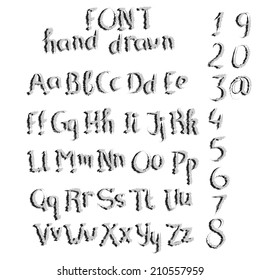 FONT
hand drawn
Aa Bb Cc Dd Ee
Ff Gg Hh Ii Jj Kk
Ll Mm Nn Oo Pp
Qq Rr Ss Tt Uu
Vv Ww Xx Yy Zz
1 9
2 0
3 @
4
5
6
7
8
shutterstock.com · 210557959